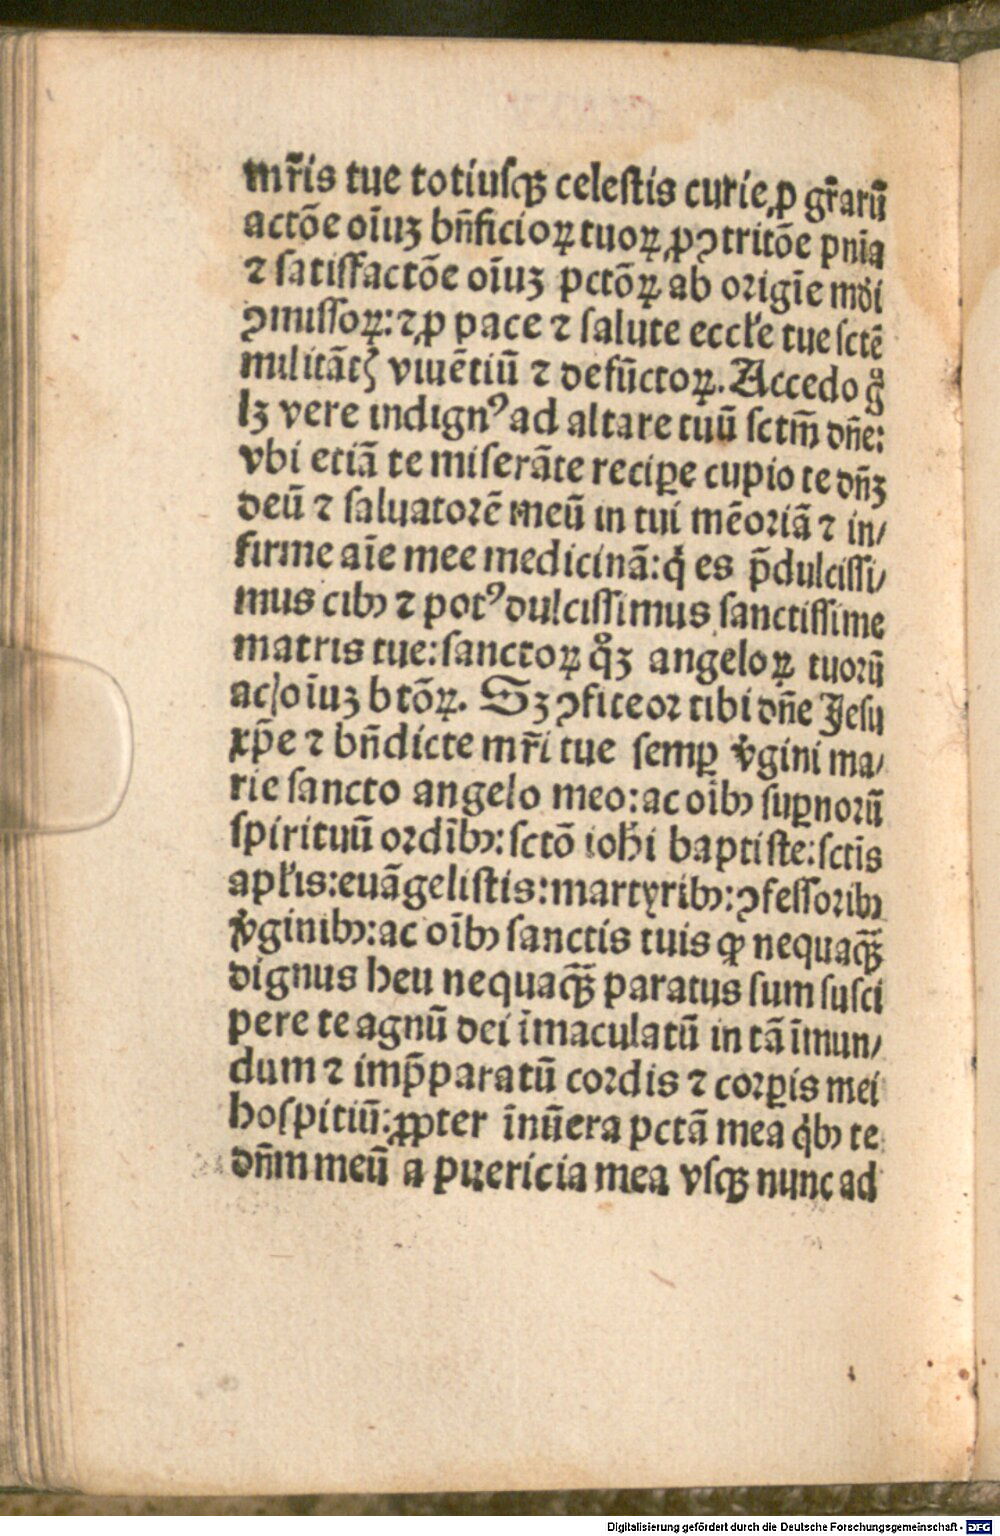 mr̄is tue totiusqꝫ celestis curie, ꝓ gr̄arū
actōe oīuꝫ bn̄ficioꝝ tuoꝝ, ꝓ ꝯtritōe pn̄ia
⁊ satisfactōe oīuꝫ pctōꝝ ab origīe mūdi
ꝯmissoꝝ: ⁊ ꝓ pace ⁊ salute eccl̄e tue sctē
militātꝭ viuētiū ⁊ defūctoꝝ. Accedo gͦ
lꝫ vere indignꝰ ad altare tuū sctm̄ dn̄e:
vbi etiā te miserāte reciꝑe cupio te dn̄ꝫ
deū ⁊ saluatorē meū in tui mēoriā ⁊ in/
firme aīe mee medicinā: qͥ es p̄dulcissi/
mus cibꝰ ⁊ potꝰ dulcissimus sanctissime
matris tue: sanctoꝝ qͦꝫ angeloꝝ tuorū
ac oīuꝫ btōꝝ. Sꝫ ꝯfiteor tibi dn̄e Jesu
xp̄e ⁊ bn̄dicte mr̄i tue semꝑ vͥgini ma/
rie sancto angelo meo: ac oībꝰ suꝑnorū
spirituū ordībꝰ: sctō ioh̄i baptiste: sctīs
apl̄is: euāgelistis: martyribꝰ: ꝯfessoribꝰ
vͥginibꝰ: ac oībꝰ sanctis tuis ꝙ nequaqꝫ̄
dignus heu nequaqꝫ̄ paratus sum susci
pere te agnū dei īmaculatū in tā īmun/
dum ⁊ imp̄paratū cordis ⁊ corꝑis mei
hospitiū: ꝓpter īnūera pctā mea qͥbꝰ te
dn̄m meū a puericia mea vsqꝫ nunc ad
Digitalisierung gefördert durch die Deutsche Forschungsgemeinschaft - DFG